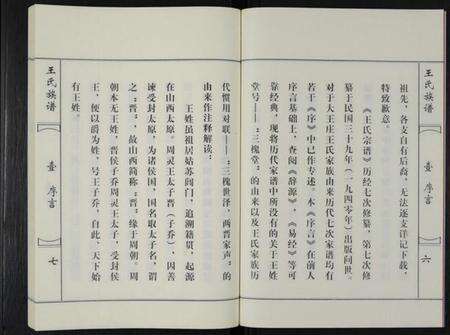 王氏族谱
壹 序言
六
祖先，各支自有后裔，无法逐支详记下载，
特致歉意。
《王氏宗谱》历经七次修纂，第七次修
纂于民国三十九年（一九四零年）出版问世。
对于大王庄王氏家族由来历代七次家谱均有
若干《序》中已作专述。本《序言》在前人
序言基础上，查阅《辞源》，《易经》等可
弥经典，现将历代家谱中所没有的关于王姓
堂号——“三槐堂”的由来以及王氏家族历
代惯用对联——“三槐世泽，两晋家声”的
由来作注释解读：
王姓虽祖居姑苏阊门，追溯籍贯，起源
在山西太原。周灵王太子晋（子乔），因善
谏受封太原，为诸侯国，国名取太子名，谓
之“晋”，故山西简称“晋”缘于周朝。周
朝本无王姓，晋侯子乔周灵王太子，受封侯
王，便以爵为姓，号王子乔，自此，天下始
有王姓。
王氏族谱
壹 序言
七